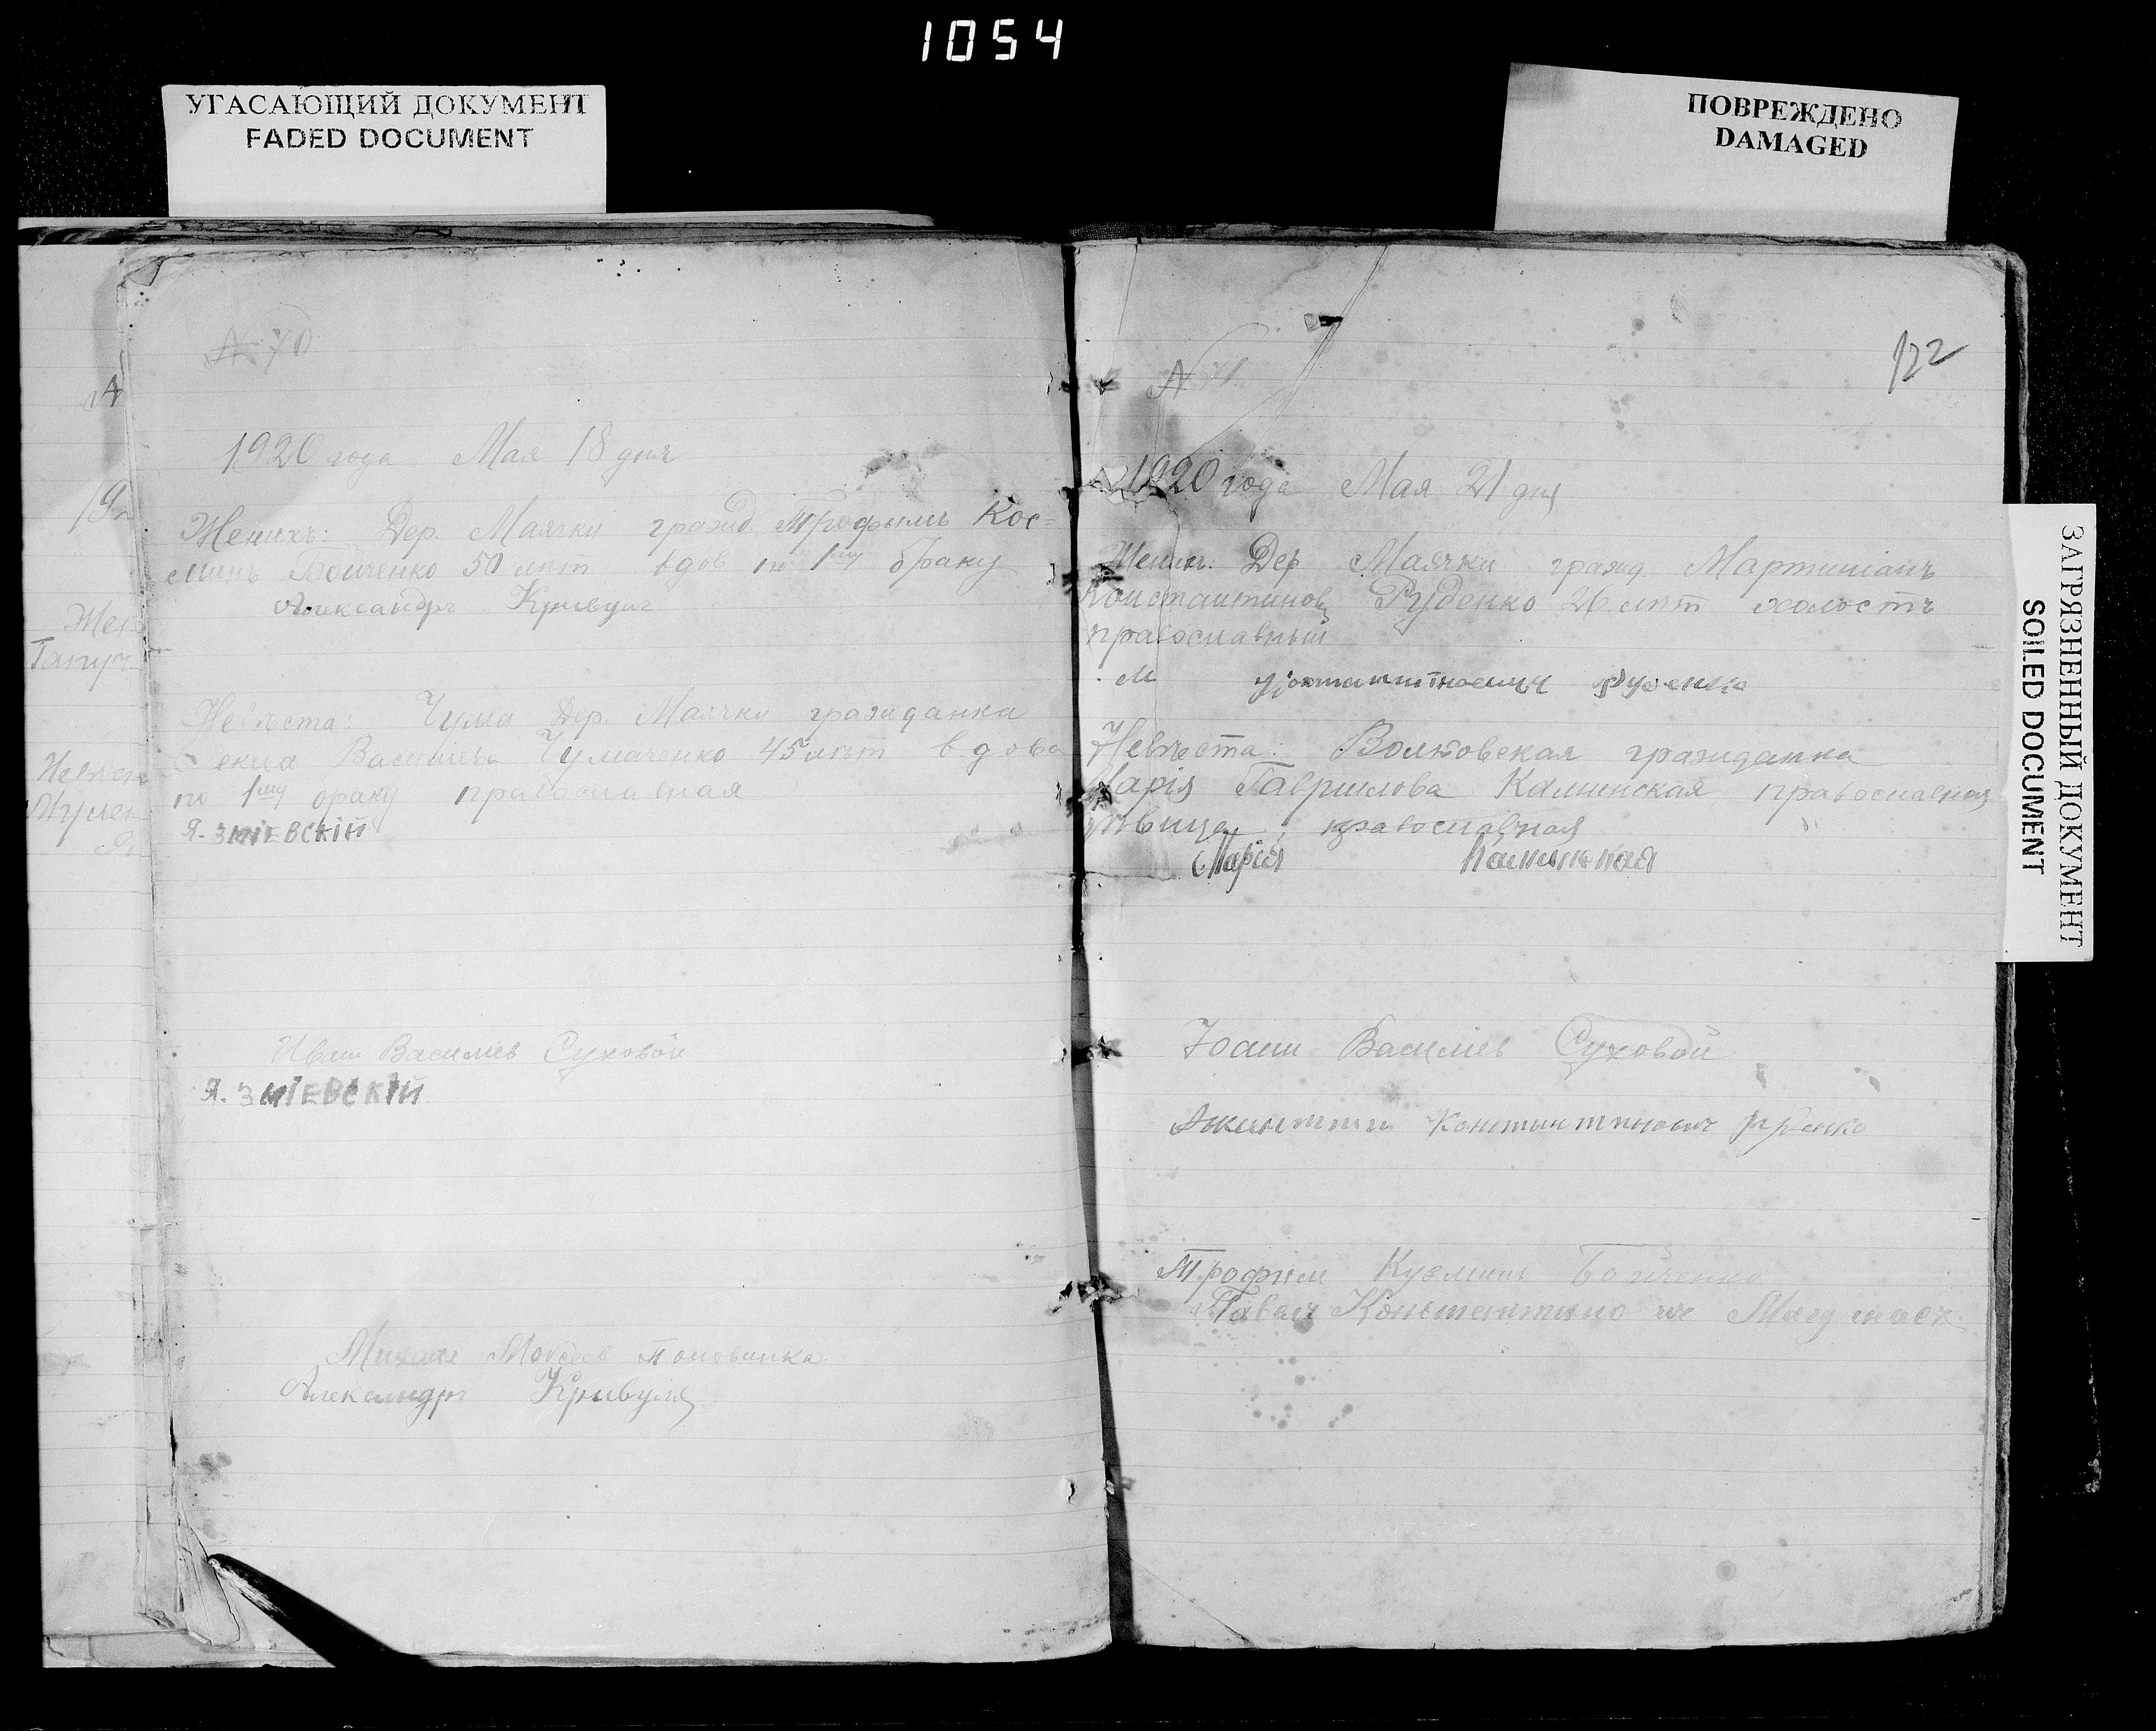 1054
УГАСАЮЩИЙ ДОКУМЕНТ
FADED DOCUMENT
ПОВРЕЖДЕНО
DAMAGED
ЗАГРЯЗНЕННЫЙ ДОКУМЕНТ
SOILED DOCUMENT
№ 70
1920 года Мая 18 дня
Женихъ: Дер. Маячки гражд Трофимъ Кос=
минъ Бойченко 50 лѣт вдов по 1му браку
Александръ Кривуля
Невѣста: Чума Дер. Маячки гражданка
Василиева Чумаченко 45 лѣт вдова
по 1му браку православная
Я. ЗМІЕВСКІЙ
Иван Василіев Суховой
Я. ЗМІЕВСКІЙ
Михаил Моисеев Половинка
Александръ Кривуля
122
№ 71
1920 года Мая 21 дня
Жених: Дер Маячки гражд. Мартиніанъ
Константиновъ Руденко 26 лѣт холостъ
православный
М Руденко
Невѣста: Волковская гражданка
Марія Гаврилова Калинская православная
дѣвица, православная
Марія Калинская
Іоанн Василіев Суховой
Константинович
Трофим Кузминъ Бойченко
Павел